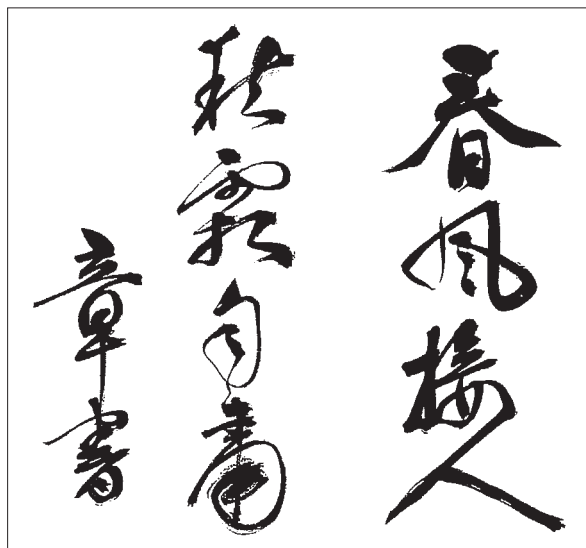 春風接人
秋霜自肅
章書